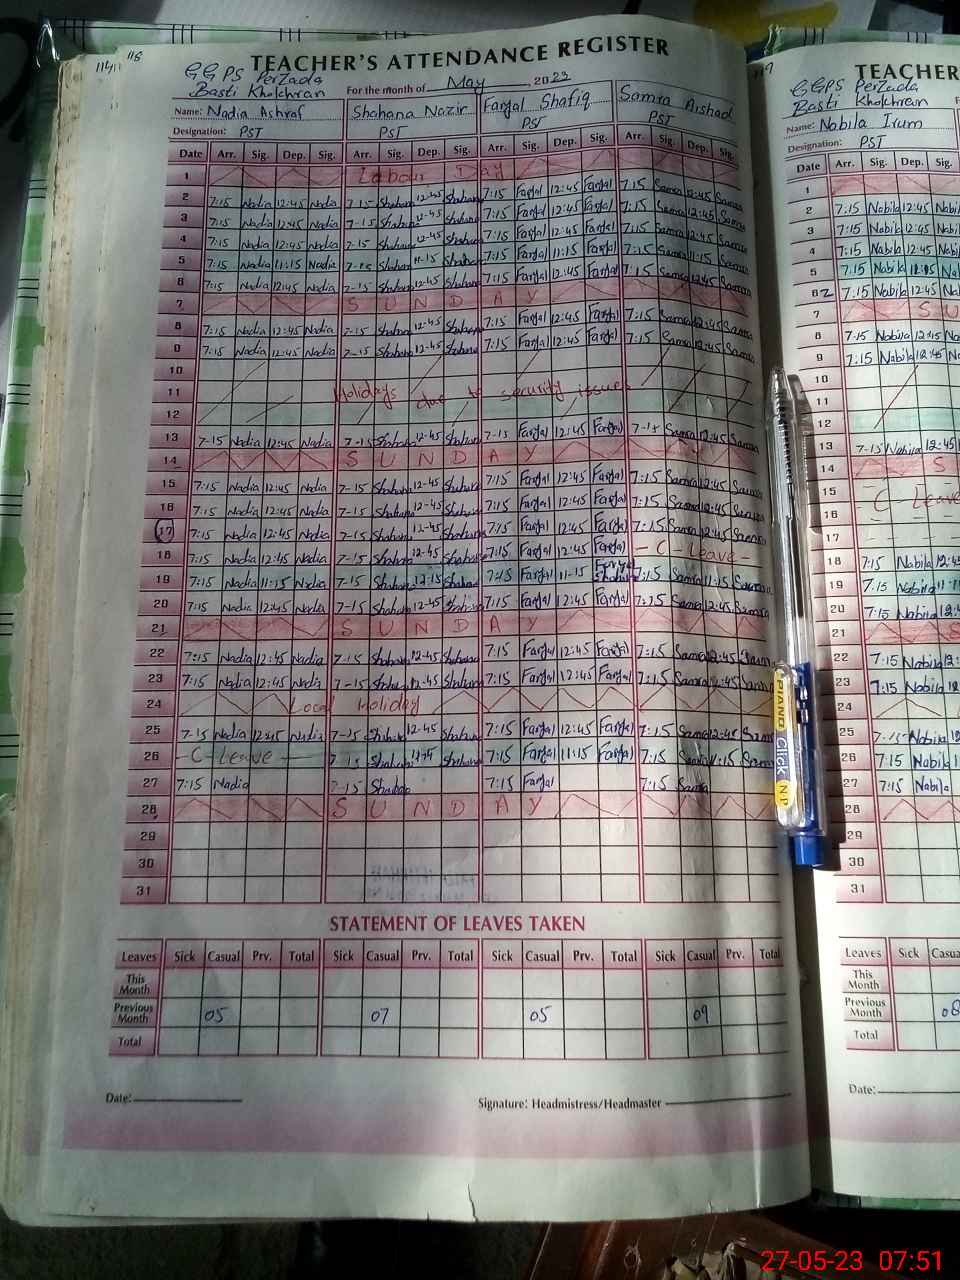 114 116
TEACHER'S ATTENDANCE REGISTER
GGPS PerZada
Basti Kholchran
For the month of May 2023
Name: Nadia Ashraf Shahana Nazir Farzal Shafiq Samra Arshad
Designation: PST PST PST PST
Date Arr. Sig. Dep. Sig. Arr. Sig. Dep. Sig. Arr. Sig. Dep. Sig. Arr. Sig. Dep. Sig.
1 Labour Day
2 7:15 Nadia 12:45 Nadia 7-15 Shahana 12-45 Shahana 7:15 Farzal 12:45 Farzal 7:15 Samra 12:45 Samra
3 7:15 Nadia 12:45 Nadia 7-15 Shahana 12-45 Shahana 7:15 Farzal 12:45 Farzal 7:15 Samra 12:45 Samra
4 7:15 Nadia 12:45 Nadia 7-15 Shahana 12-45 Shahana 7:15 Farzal 12:45 Farzal 7:15 Samra 12:45 Samra
5 7:15 Nadia 11:15 Nadia 7-15 Shahana 11-15 Shahana 7:15 Farzal 11:15 Farzal 7:15 Samra 11:15 Samra
6 7:15 Nadia 12:45 Nadia 7-15 Shahana 12-45 Shahana 7:15 Farzal 12:45 Farzal 7:15 Samra 12:45 Samra
7 SUNDAY
8 7:15 Nadia 12:45 Nadia 7-15 Shahana 12-45 Shahana 7:15 Farzal 12:45 Farzal 7:15 Samra 12:45 Samra
9 7:15 Nadia 12:45 Nadia 7-15 Shahana 12-45 Shahana 7:15 Farzal 12:45 Farzal 7:15 Samra 12:45 Samra
10
11 Holidays due to security issues
12
13 7-15 Nadia 12:45 Nadia 7-15 Shahana 12-45 Shahana 7-15 Farzal 12:45 Farzal Samra 12:45 Samra
14 SUNDAY
15 7:15 Nadia 12:45 Nadia 7-15 Shahana 12-45 Shahana 7:15 Farzal 12:45 Farzal 7:15 Samra 12:45 Samra
16 7:15 Nadia 12:45 Nadia 7-15 Shahana 12-45 Shahana 7:15 Farzal 12:45 Farzal 7:15 Samra 12:45 Samra
17 7:15 Nadia 12:45 Nadia 7-15 Shahana 12-45 Shahana 7:15 Farzal 12:45 Farzal 7:15 Samra 12:45 Samra
18 7:15 Nadia 12:45 Nadia 7-15 Shahana 12-45 Shahana 7:15 Farzal 12:45 Farzal - C - Leave -
19 7:15 Nadia 11:15 Nadia 7-15 Shahana Shahana 7:15 Farzal 11-15 7:15 Samra 11:15 Samra
20 7:15 Nadia 12:45 Nadia 7-15 Shahana 12-45 Shahana 7:15 Farzal 12:45 Farzal 7:15 Samra 12:45 Samra
21 SUNDAY
22 7:15 Nadia 12:45 Nadia 7-15 Shahana 12-45 Shahana 7:15 Farzal 12:45 Farzal 7:15 Samra 12:45 Samra
23 7:15 Nadia 12:45 Nadia 7-15 Shahana 12-45 Shahana 7:15 Farzal 12:45 Farzal 7:15 Samra 12:45 Samra
24 Local Holiday
25 7-15 Nadia 12:45 Nadia 7-15 Shahana 12-45 Shahana 7:15 Farzal 12:45 Farzal 7:15 Samra 12:45 Samra
26 - C - Leave - 7-15 Shahana Shahana 7:15 Farzal 11:15 Farzal 7:15 Samra 11:15 Samra
27 7:15 Nadia 7-15 Shahana 7:15 Farzal 7:15 Samra
28 SUNDAY
29
30
31
STATEMENT OF LEAVES TAKEN
Leaves Sick Casual Prv. Total Sick Casual Prv. Total Sick Casual Prv. Total Sick Casual Prv. Total
This Month
Previous Month 05 07 05 09
Total
Date:
Signature: Headmistress/Headmaster
TEACHER
GGPS PerZada
Basti Kholchran
Name: Nabila Irum
Designation: PST
Date Arr. Sig. Dep.
1
2 7:15 Nabila 12:45
3 7:15 Nabila 12:45
4 7:15 Nabila 12:45
5 7:15 Nabila
6 7:15 Nabila 12:45
7 SU
8 7:15 Nabila
9 7:15 Nabila 12:45
10
11
12
13 7-15 Nabila 12:45
14 S
15
16 C Leave
17
18 7:15 Nabila
19 7:15 Nabila
20 7:15 Nabila
21 S
22 7:15 Nabila
23 7:15 Nabila
24
25 7-15 Nabila
26 7:15 Nabila
27 7:15 Nabila
28
29
30
31
Leaves Sick
This Month
Previous Month
Total
Date:
PIANO CLICK NP
27-05-23 07:51